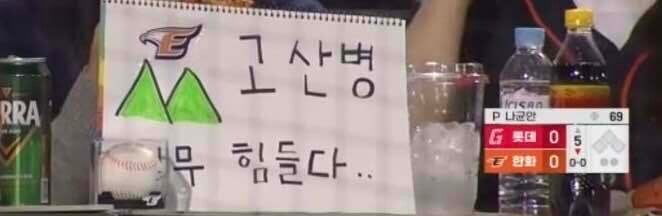 고산병
무 힘들다..
RRA
P 나균안 69
롯데 0 5
한화 0 0-0